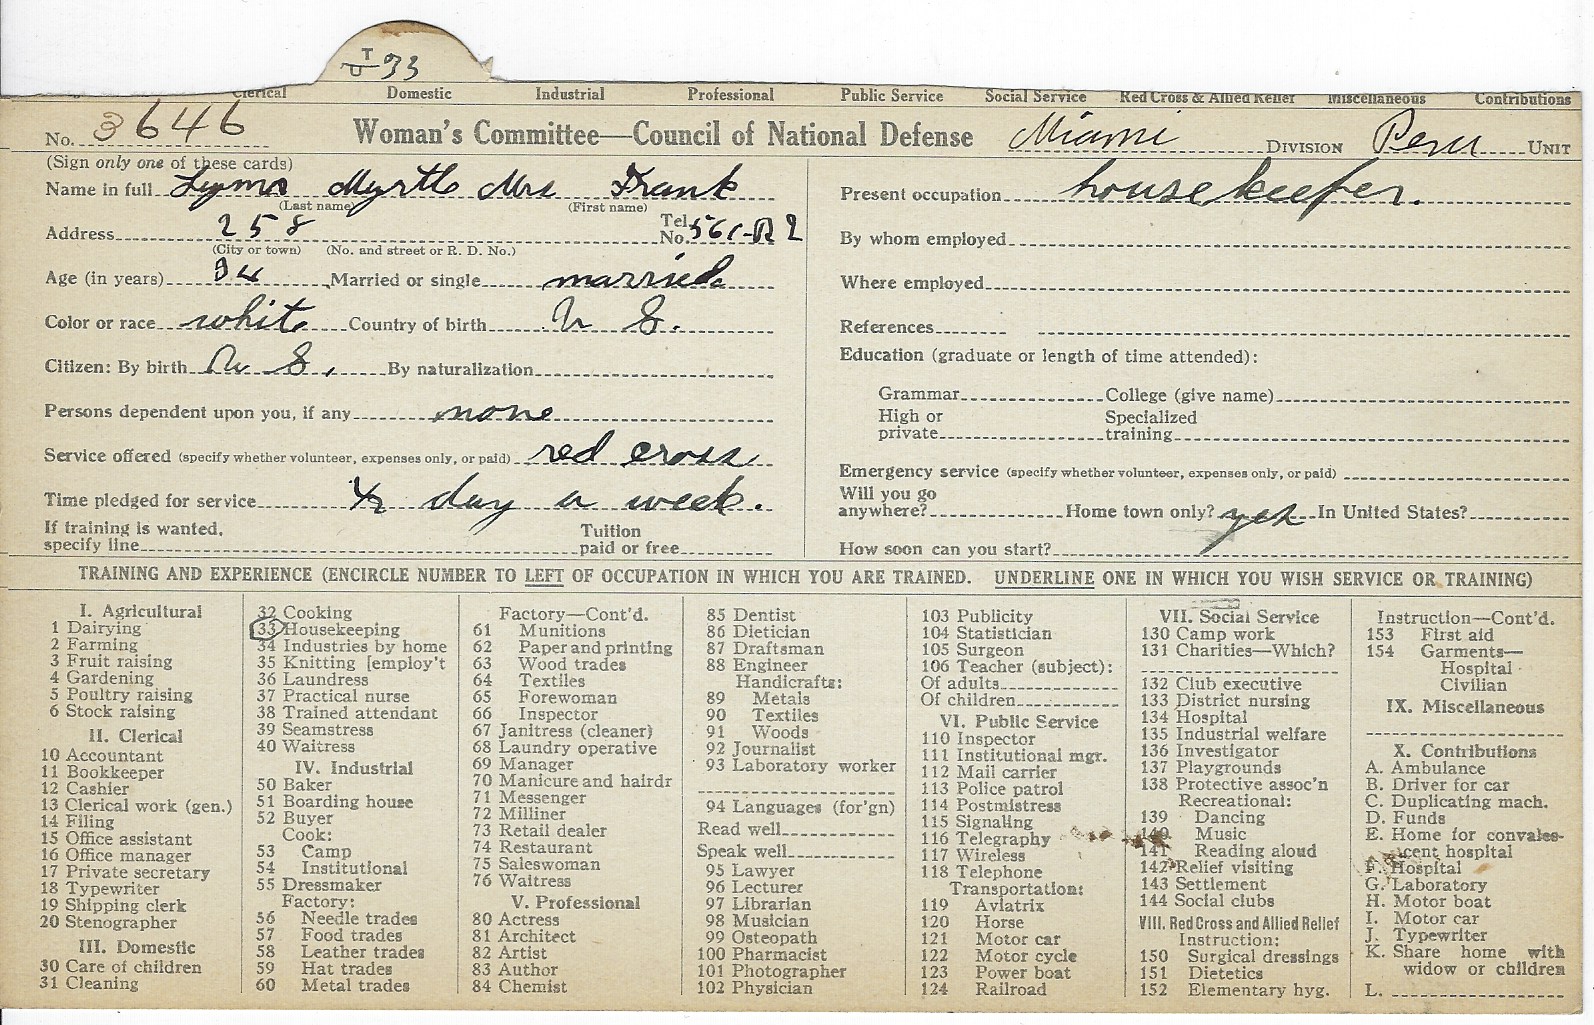 T
U 33
Clerical Domestic Industrial Professional Public Service Social Service Red Cross & Allied Relief Miscellaneous Contributions
No. 3646 Woman's Committee—Council of National Defense Miami DIVISION Peru UNIT
(Sign only one of these cards)
Name in full Myrtle Mrs Frank
(Last name) (First name)
Address 258 Tel. No. 561-R2
(City or town) (No. and street or R. D. No.)
Age (in years) 34 Married or single married
Color or race white Country of birth U S.
Citizen: By birth U S. By naturalization
Persons dependent upon you, if any none
Service offered (specify whether volunteer, expenses only, or paid) red cross
Time pledged for service 1/2 day a week.
If training is wanted, specify line Tuition paid or free
Present occupation housekeeper.
By whom employed
Where employed
References
Education (graduate or length of time attended):
Grammar College (give name)
High or Specialized
private training
Emergency service (specify whether volunteer, expenses only, or paid)
Will you go
anywhere? Home town only? yes In United States?
How soon can you start?
TRAINING AND EXPERIENCE (ENCIRCLE NUMBER TO LEFT OF OCCUPATION IN WHICH YOU ARE TRAINED. UNDERLINE ONE IN WHICH YOU WISH SERVICE OR TRAINING)
I. Agricultural
1 Dairying
2 Farming
3 Fruit raising
4 Gardening
5 Poultry raising
6 Stock raising
II. Clerical
10 Accountant
11 Bookkeeper
12 Cashier
13 Clerical work (gen.)
14 Filing
15 Office assistant
16 Office manager
17 Private secretary
18 Typewriter
19 Shipping clerk
20 Stenographer
III. Domestic
30 Care of children
31 Cleaning
32 Cooking
33 Housekeeping
34 Industries by home
35 Knitting [employ't
36 Laundress
37 Practical nurse
38 Trained attendant
39 Seamstress
40 Waitress
IV. Industrial
50 Baker
51 Boarding house
52 Buyer
Cook:
53 Camp
54 Institutional
55 Dressmaker
Factory:
56 Needle trades
57 Food trades
58 Leather trades
59 Hat trades
60 Metal trades
Factory—Cont'd.
61 Munitions
62 Paper and printing
63 Wood trades
64 Textiles
65 Forewoman
66 Inspector
67 Janitress (cleaner)
68 Laundry operative
69 Manager
70 Manicure and hairdr
71 Messenger
72 Milliner
73 Retail dealer
74 Restaurant
75 Saleswoman
76 Waitress
V. Professional
80 Actress
81 Architect
82 Artist
83 Author
84 Chemist
85 Dentist
86 Dietician
87 Draftsman
88 Engineer
Handicrafts:
89 Metals
90 Textiles
91 Woods
92 Journalist
93 Laboratory worker
94 Languages (for'gn)
Read well
Speak well
95 Lawyer
96 Lecturer
97 Librarian
98 Musician
99 Osteopath
100 Pharmacist
101 Photographer
102 Physician
103 Publicity
104 Statistician
105 Surgeon
106 Teacher (subject):
Of adults
Of children
VI. Public Service
110 Inspector
111 Institutional mgr.
112 Mail carrier
113 Police patrol
114 Postmistress
115 Signaling
116 Telegraphy
117 Wireless
118 Telephone
Transportation:
119 Aviatrix
120 Horse
121 Motor car
122 Motor cycle
123 Power boat
124 Railroad
VII. Social Service
130 Camp work
131 Charities—Which?
132 Club executive
133 District nursing
134 Hospital
135 Industrial welfare
136 Investigator
137 Playgrounds
138 Protective assoc'n
Recreational:
139 Dancing
140 Music
141 Reading aloud
142 Relief visiting
143 Settlement
144 Social clubs
VIII. Red Cross and Allied Relief
Instruction:
150 Surgical dressings
151 Dietetics
152 Elementary hyg.
Instruction—Cont'd.
153 First aid
154 Garments—
Hospital
Civilian
IX. Miscellaneous
X. Contributions
A. Ambulance
B. Driver for car
C. Duplicating mach.
D. Funds
E. Home for convales-
cent hospital
F. Hospital
G. Laboratory
H. Motor boat
I. Motor car
J. Typewriter
K. Share home with
widow or children
L.